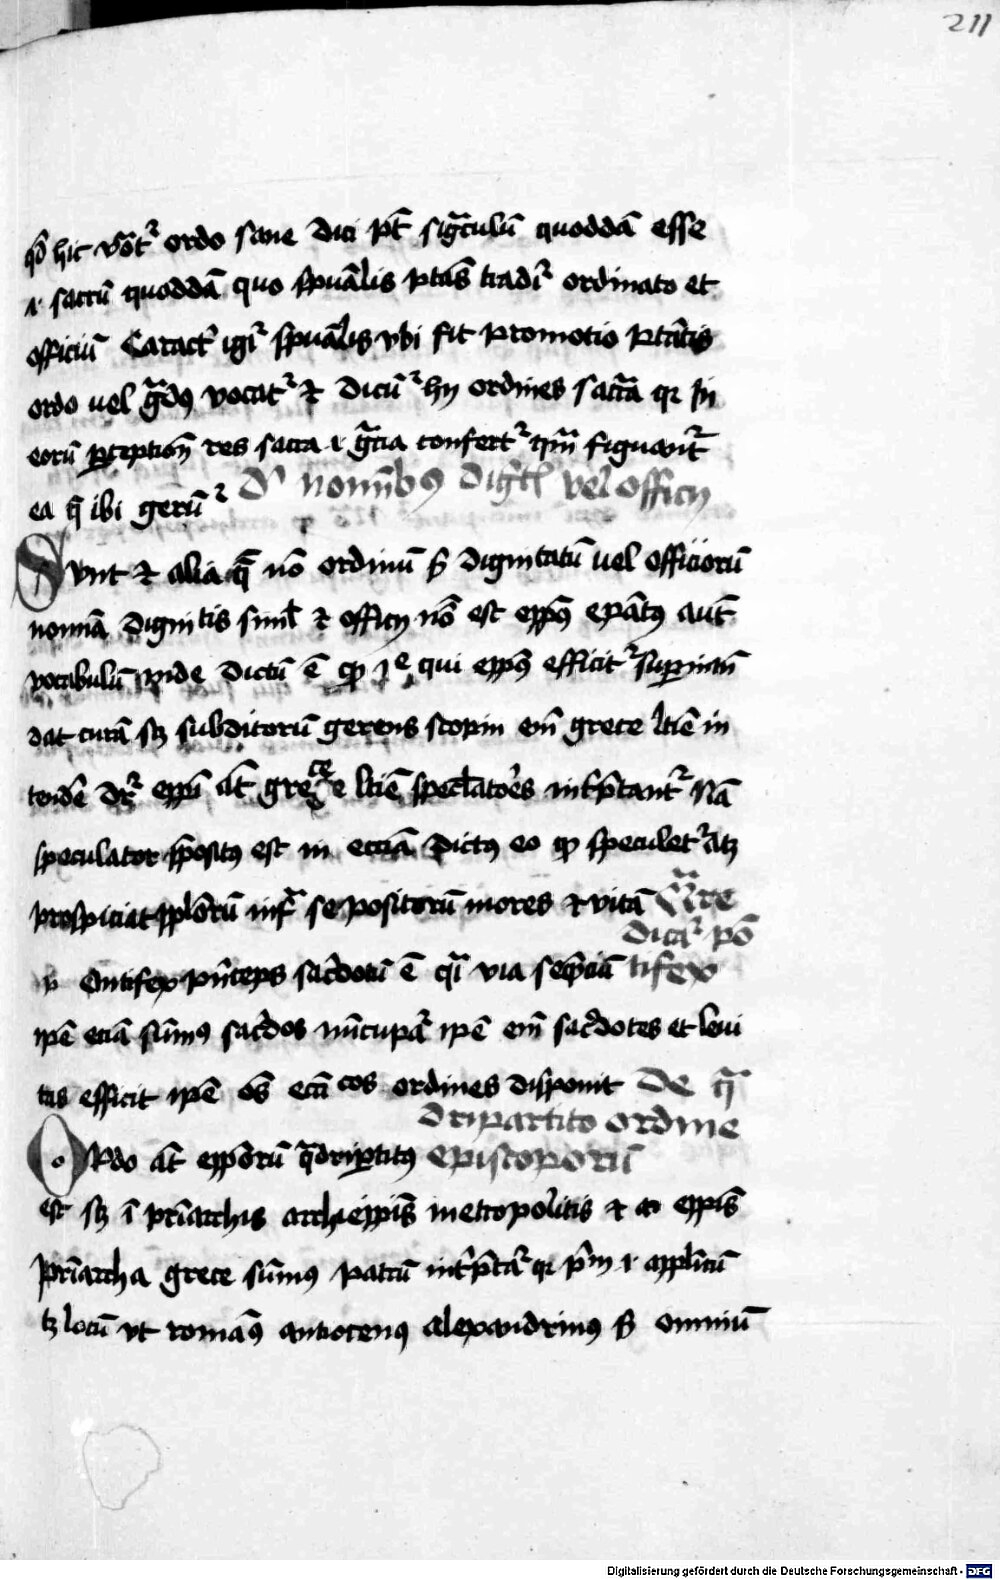 211
qd̄ hic vōt᷑ ordo sane dici pt̄ siḡculū quoddā esse
.i. sacrū quoddā quo spūalis ptās tradit᷑ ordinato et
officiū Caract᷑ igit᷑ spūalis vbi fit promotio ptātis
ordo uel ḡdꝰ vocat᷑ et dicūt᷑ hij ordines sacrā qr in
eorū ꝑceptiōn res sacra .i. grācia confert᷑ qm̄ figurant᷑
ea q̄ ibi gerūt᷑ De nomībꝰ digt̄ vel officij
Sunt et alia q̄ nō ordinū s̄ dignitatū uel officiorū
nomīa dignitis siml̄ et officij nō est eppꝰ epātꝰ aut̄
vocabulū inde dictū ē qp̄ ıꝉe qui eppꝰ efficit᷑ suꝑintān
dat curā scꝫ subditorū gerens scopin em̄ grece ltīe in
tendē dr᷑ eppī at̄ grece ltīe speclātores int᷑p̄tant᷑ Nā
speculator p̄positꝰ est in eccīa dictus eo qp̄ speculet᷑ atqꝫ
prospiciat pplōrū infrā se positorū mores et vitā Quare
dicit᷑ pō
Ontifex pn̄ceps sacdotū ē qi via seqn̄ciū tifex
ipē eciā sūmꝰ sac᷑dos nūcupat᷑ ipē em̄ sac᷑dotes et leui
tas efficit ipē oēs eccīcos ordines disponit De q̄
dripartito ordine
Ordo at̄ eppōrū q̄driꝑtitꝰ episcoporū
est scꝫ ī prīarchis archieppis̄ metropolitis et eppis̄
Prīarcha grece sūmꝰ patrū int᷑p̄tat᷑ qr pm̄ .i. applicū
tꝫ locū vt romāꝰ antiocenꝰ alexandrinꝰ s̄ omniū
Digitalisierung gefördert durch die Deutsche Forschungsgemeinschaft - DFG